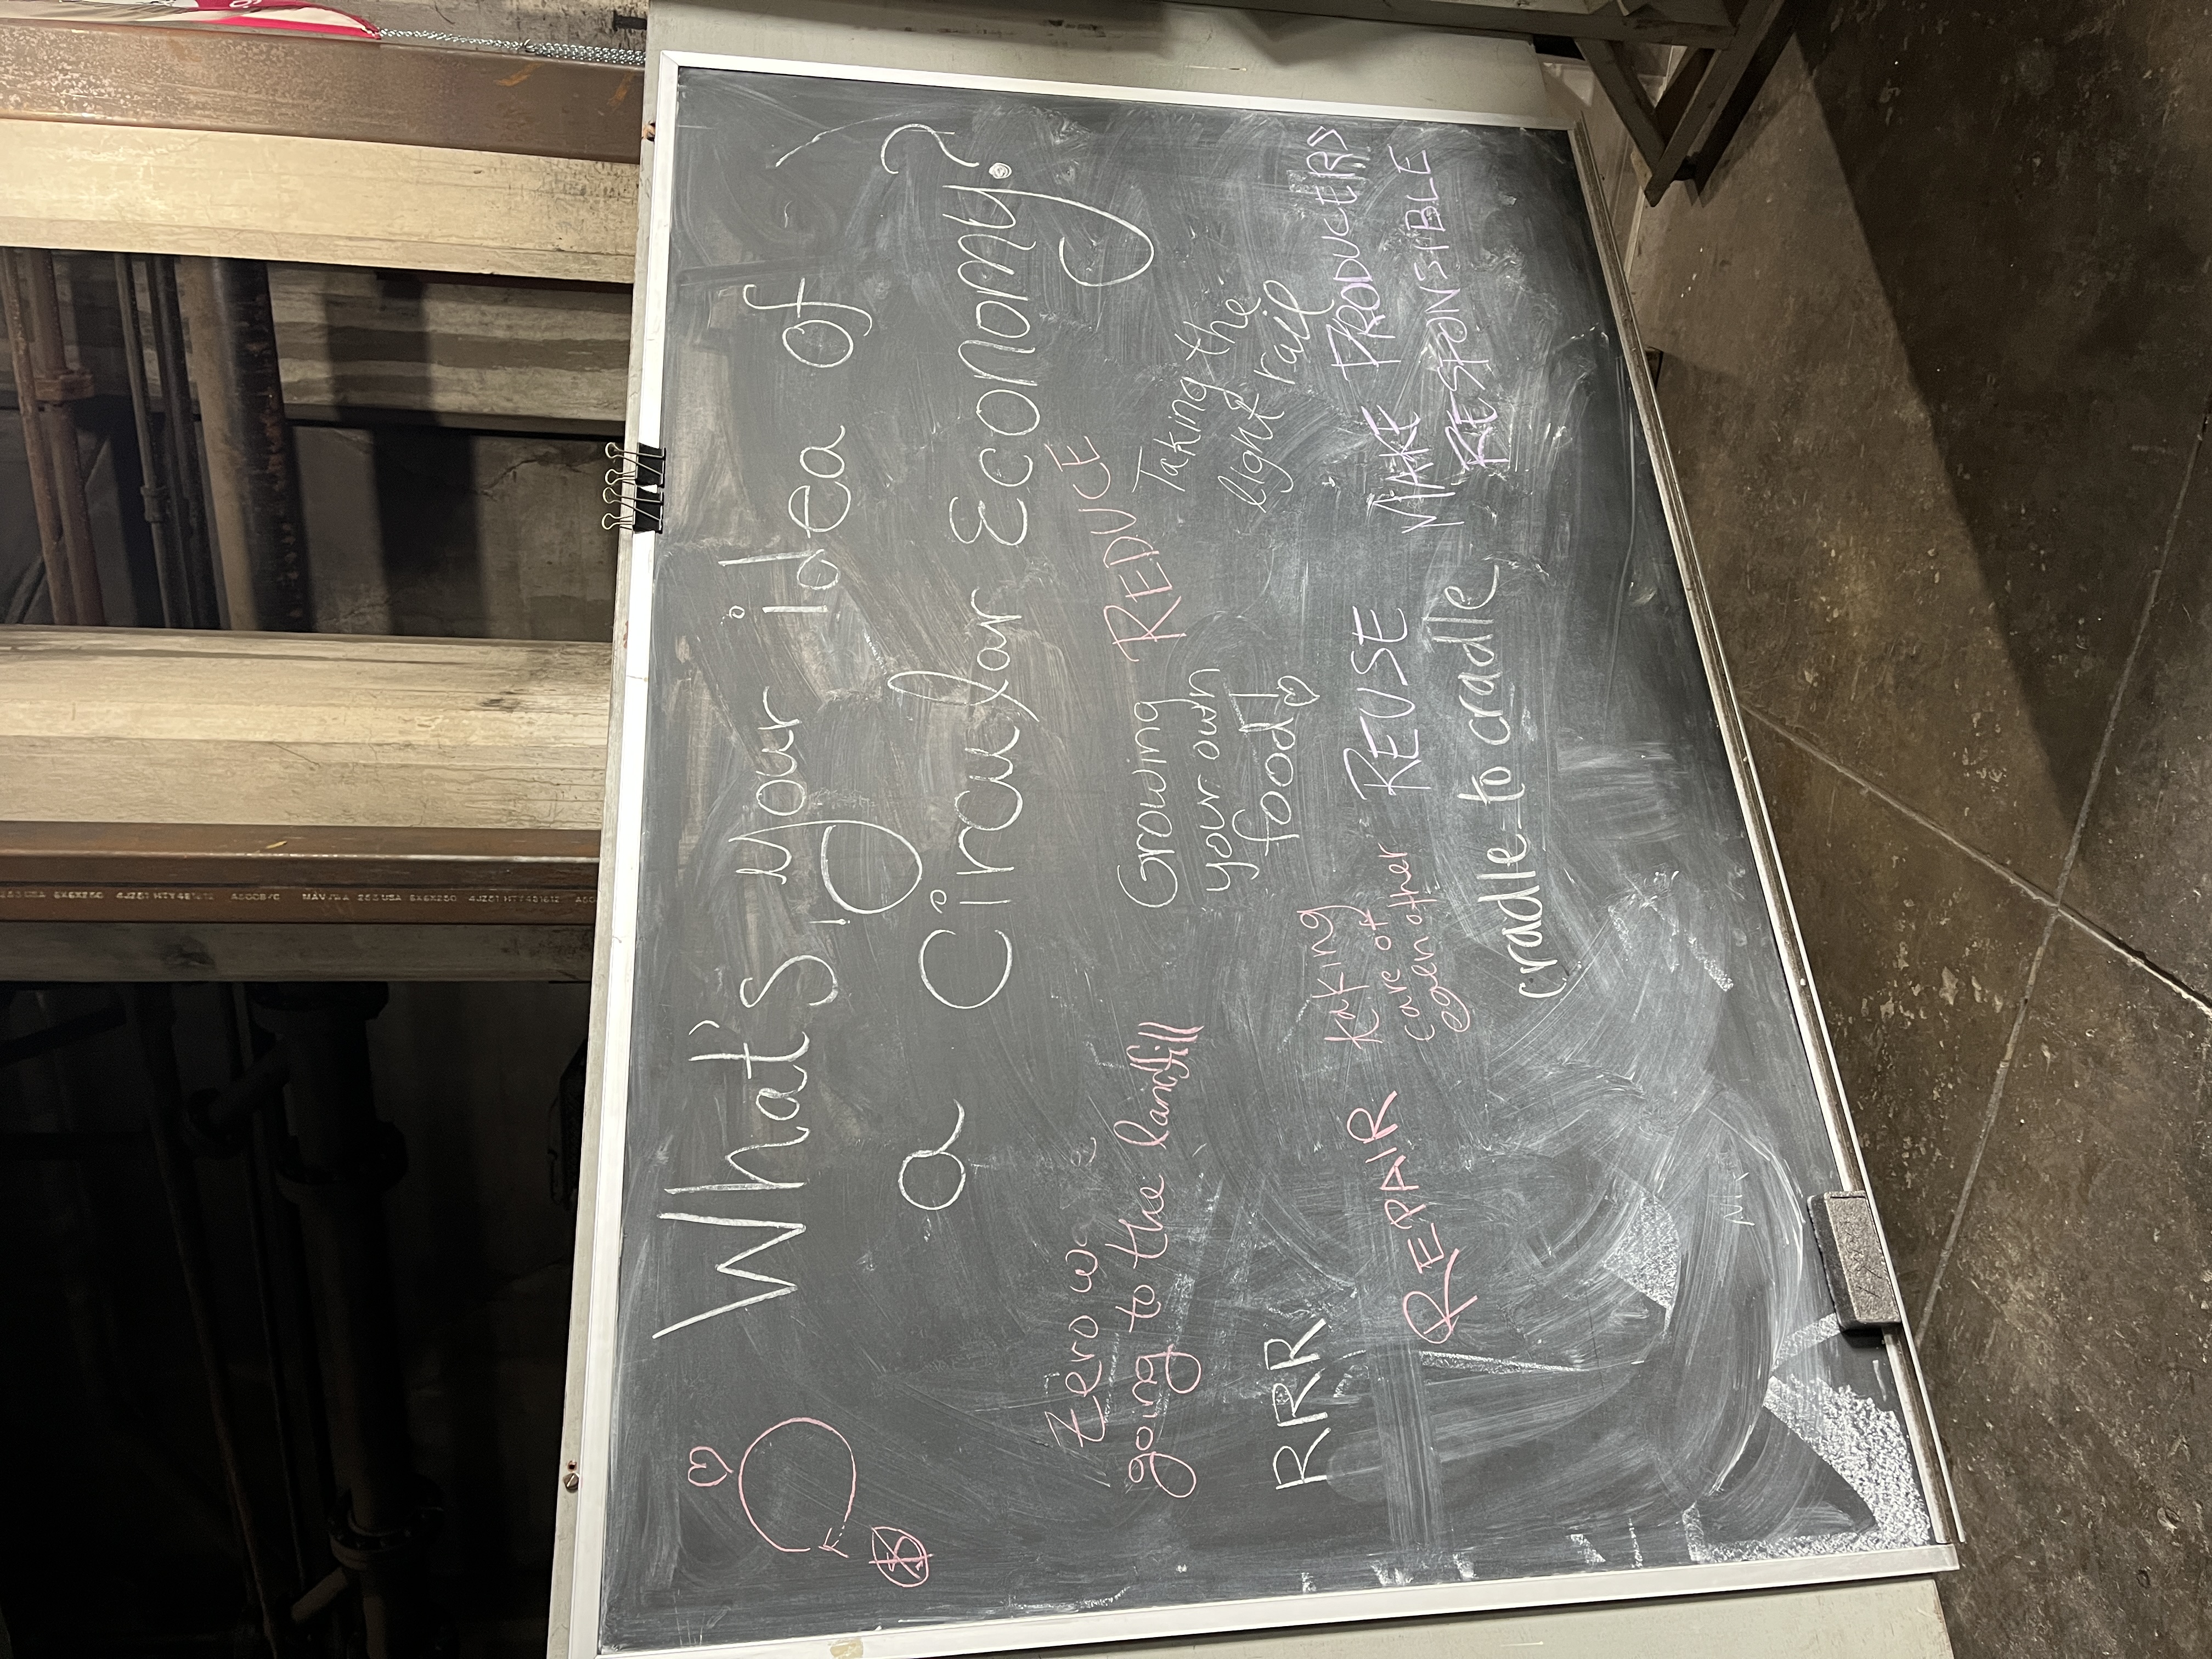 What's your idea of
a Circular Economy?
REDUCE
Zero
going to the landfill
Growing
your own
food!
Taking the
light rail
RRR
REPAIR
taking
care of
other
REUSE
MAKE PRODUCERS
RESPONSIBLE
cradle-to cradle